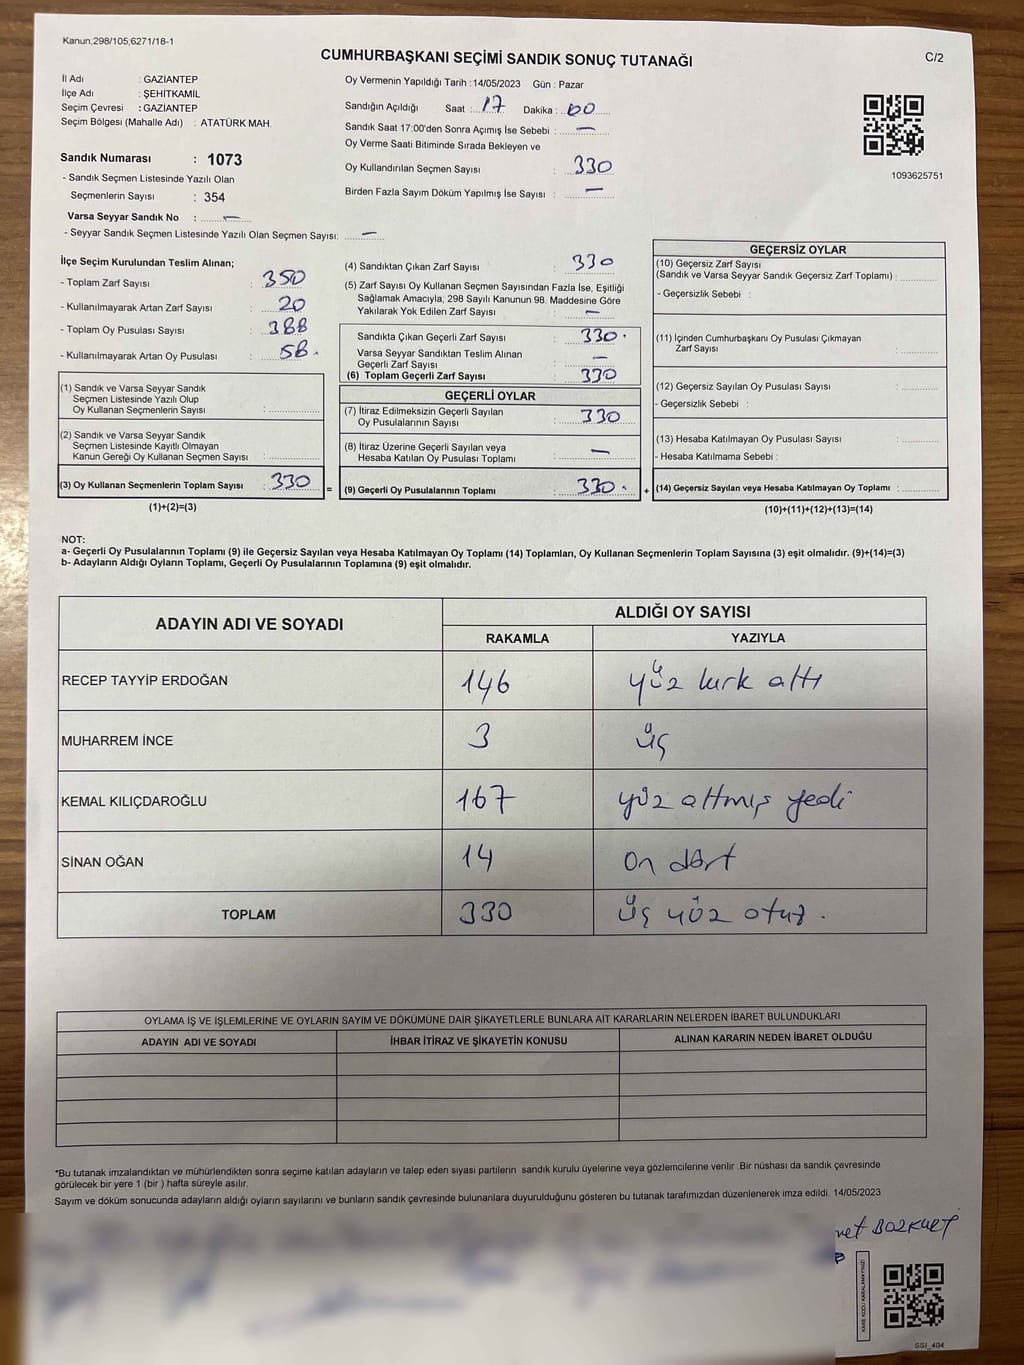 Kanun;298/105;6271/18-1
CUMHURBAŞKANI SEÇİMİ SANDIK SONUÇ TUTANAĞI
C/2
İl Adı : GAZİANTEP
İlçe Adı : ŞEHİTKAMİL
Seçim Çevresi : GAZİANTEP
Seçim Bölgesi (Mahalle Adı) : ATATÜRK MAH.
Sandık Numarası : 1073
- Sandık Seçmen Listesinde Yazılı Olan
Seçmenlerin Sayısı : 354
Varsa Seyyar Sandık No : —
- Seyyar Sandık Seçmen Listesinde Yazılı Olan Seçmen Sayısı: —
Oy Vermenin Yapıldığı Tarih : 14/05/2023 Gün : Pazar
Sandığın Açıldığı Saat : 17 Dakika : 00
Sandık Saat 17:00'den Sonra Açımış İse Sebebi : —
Oy Verme Saati Bitiminde Sırada Bekleyen ve
Oy Kullandırılan Seçmen Sayısı : 330
Birden Fazla Sayım Döküm Yapılmış İse Sayısı : —
1093625751
İlçe Seçim Kurulundan Teslim Alınan;
- Toplam Zarf Sayısı : 350
- Kullanılmayarak Artan Zarf Sayısı : 20
- Toplam Oy Pusulası Sayısı : 388
- Kullanılmayarak Artan Oy Pusulası : 58.
(1) Sandık ve Varsa Seyyar Sandık
Seçmen Listesinde Yazılı Olup
Oy Kullanan Seçmenlerin Sayısı :
(2) Sandık ve Varsa Seyyar Sandık
Seçmen Listesinde Kayıtlı Olmayan
Kanun Gereği Oy Kullanan Seçmen Sayısı :
(3) Oy Kullanan Seçmenlerin Toplam Sayısı : 330 =
(1)+(2)=(3)
(4) Sandıktan Çıkan Zarf Sayısı : 330
(5) Zarf Sayısı Oy Kullanan Seçmen Sayısından Fazla İse, Eşitliği
Sağlamak Amacıyla; 298 Sayılı Kanunun 98. Maddesine Göre
Yakılarak Yok Edilen Zarf Sayısı : —
Sandıkta Çıkan Geçerli Zarf Sayısı : 330.
Varsa Seyyar Sandıktan Teslim Alınan
Geçerli Zarf Sayısı : —
(6) Toplam Geçerli Zarf Sayısı : 330
GEÇERLİ OYLAR
(7) İtiraz Edilmeksizin Geçerli Sayılan
Oy Pusulalarının Sayısı : 330
(8) İtiraz Üzerine Geçerli Sayılan veya
Hesaba Katılan Oy Pusulası Toplamı : —
(9) Geçerli Oy Pusulalarının Toplamı : 330. +
GEÇERSİZ OYLAR
(10) Geçersiz Zarf Sayısı
(Sandık ve Varsa Seyyar Sandık Geçersiz Zarf Toplamı) :
- Geçersizlik Sebebi :
(11) İçinden Cumhurbaşkanı Oy Pusulası Çıkmayan
Zarf Sayısı :
(12) Geçersiz Sayılan Oy Pusulası Sayısı :
- Geçersizlik Sebebi :
(13) Hesaba Katılmayan Oy Pusulası Sayısı :
- Hesaba Katılmama Sebebi :
(14) Geçersiz Sayılan veya Hesaba Katılmayan Oy Toplamı :
(10)+(11)+(12)+(13)=(14)
NOT:
a- Geçerli Oy Pusulalarının Toplamı (9) ile Geçersiz Sayılan veya Hesaba Katılmayan Oy Toplamı (14) Toplamları, Oy Kullanan Seçmenlerin Toplam Sayısına (3) eşit olmalıdır. (9)+(14)=(3)
b- Adayların Aldığı Oyların Toplamı, Geçerli Oy Pusulalarının Toplamına (9) eşit olmalıdır.
ADAYIN ADI VE SOYADI
ALDIĞI OY SAYISI
RAKAMLA YAZIYLA
RECEP TAYYİP ERDOĞAN 146 yüz kırk altı
MUHARREM İNCE 3 üç
KEMAL KILIÇDAROĞLU 167 yüz altmış yedi
SİNAN OĞAN 14 on dört
TOPLAM 330 üç yüz otuz.
OYLAMA İŞ VE İŞLEMLERİNE VE OYLARIN SAYIM VE DÖKÜMÜNE DAİR ŞİKAYETLERLE BUNLARA AİT KARARLARIN NELERDEN İBARET BULUNDUKLARI
ADAYIN ADI VE SOYADI İHBAR İTİRAZ VE ŞİKAYETİN KONUSU ALINAN KARARIN NEDEN İBARET OLDUĞU
*Bu tutanak imzalandıktan ve mühürlendikten sonra seçime katılan adayların ve talep eden siyasi partilerin sandık kurulu üyelerine veya gözlemcilerine verilir .Bir nüshası da sandık çevresinde
görülecek bir yere 1 (bir ) hafta süreyle asılır.
Sayım ve döküm sonucunda adayların aldığı oyların sayılarını ve bunların sandık çevresinde bulunanlara duyurulduğunu gösteren bu tutanak tarafımızdan düzenlenerek imza edildi. 14/05/2023
BOZKURT
KARE KODU KARALAMAYINIZ!
SSI_404